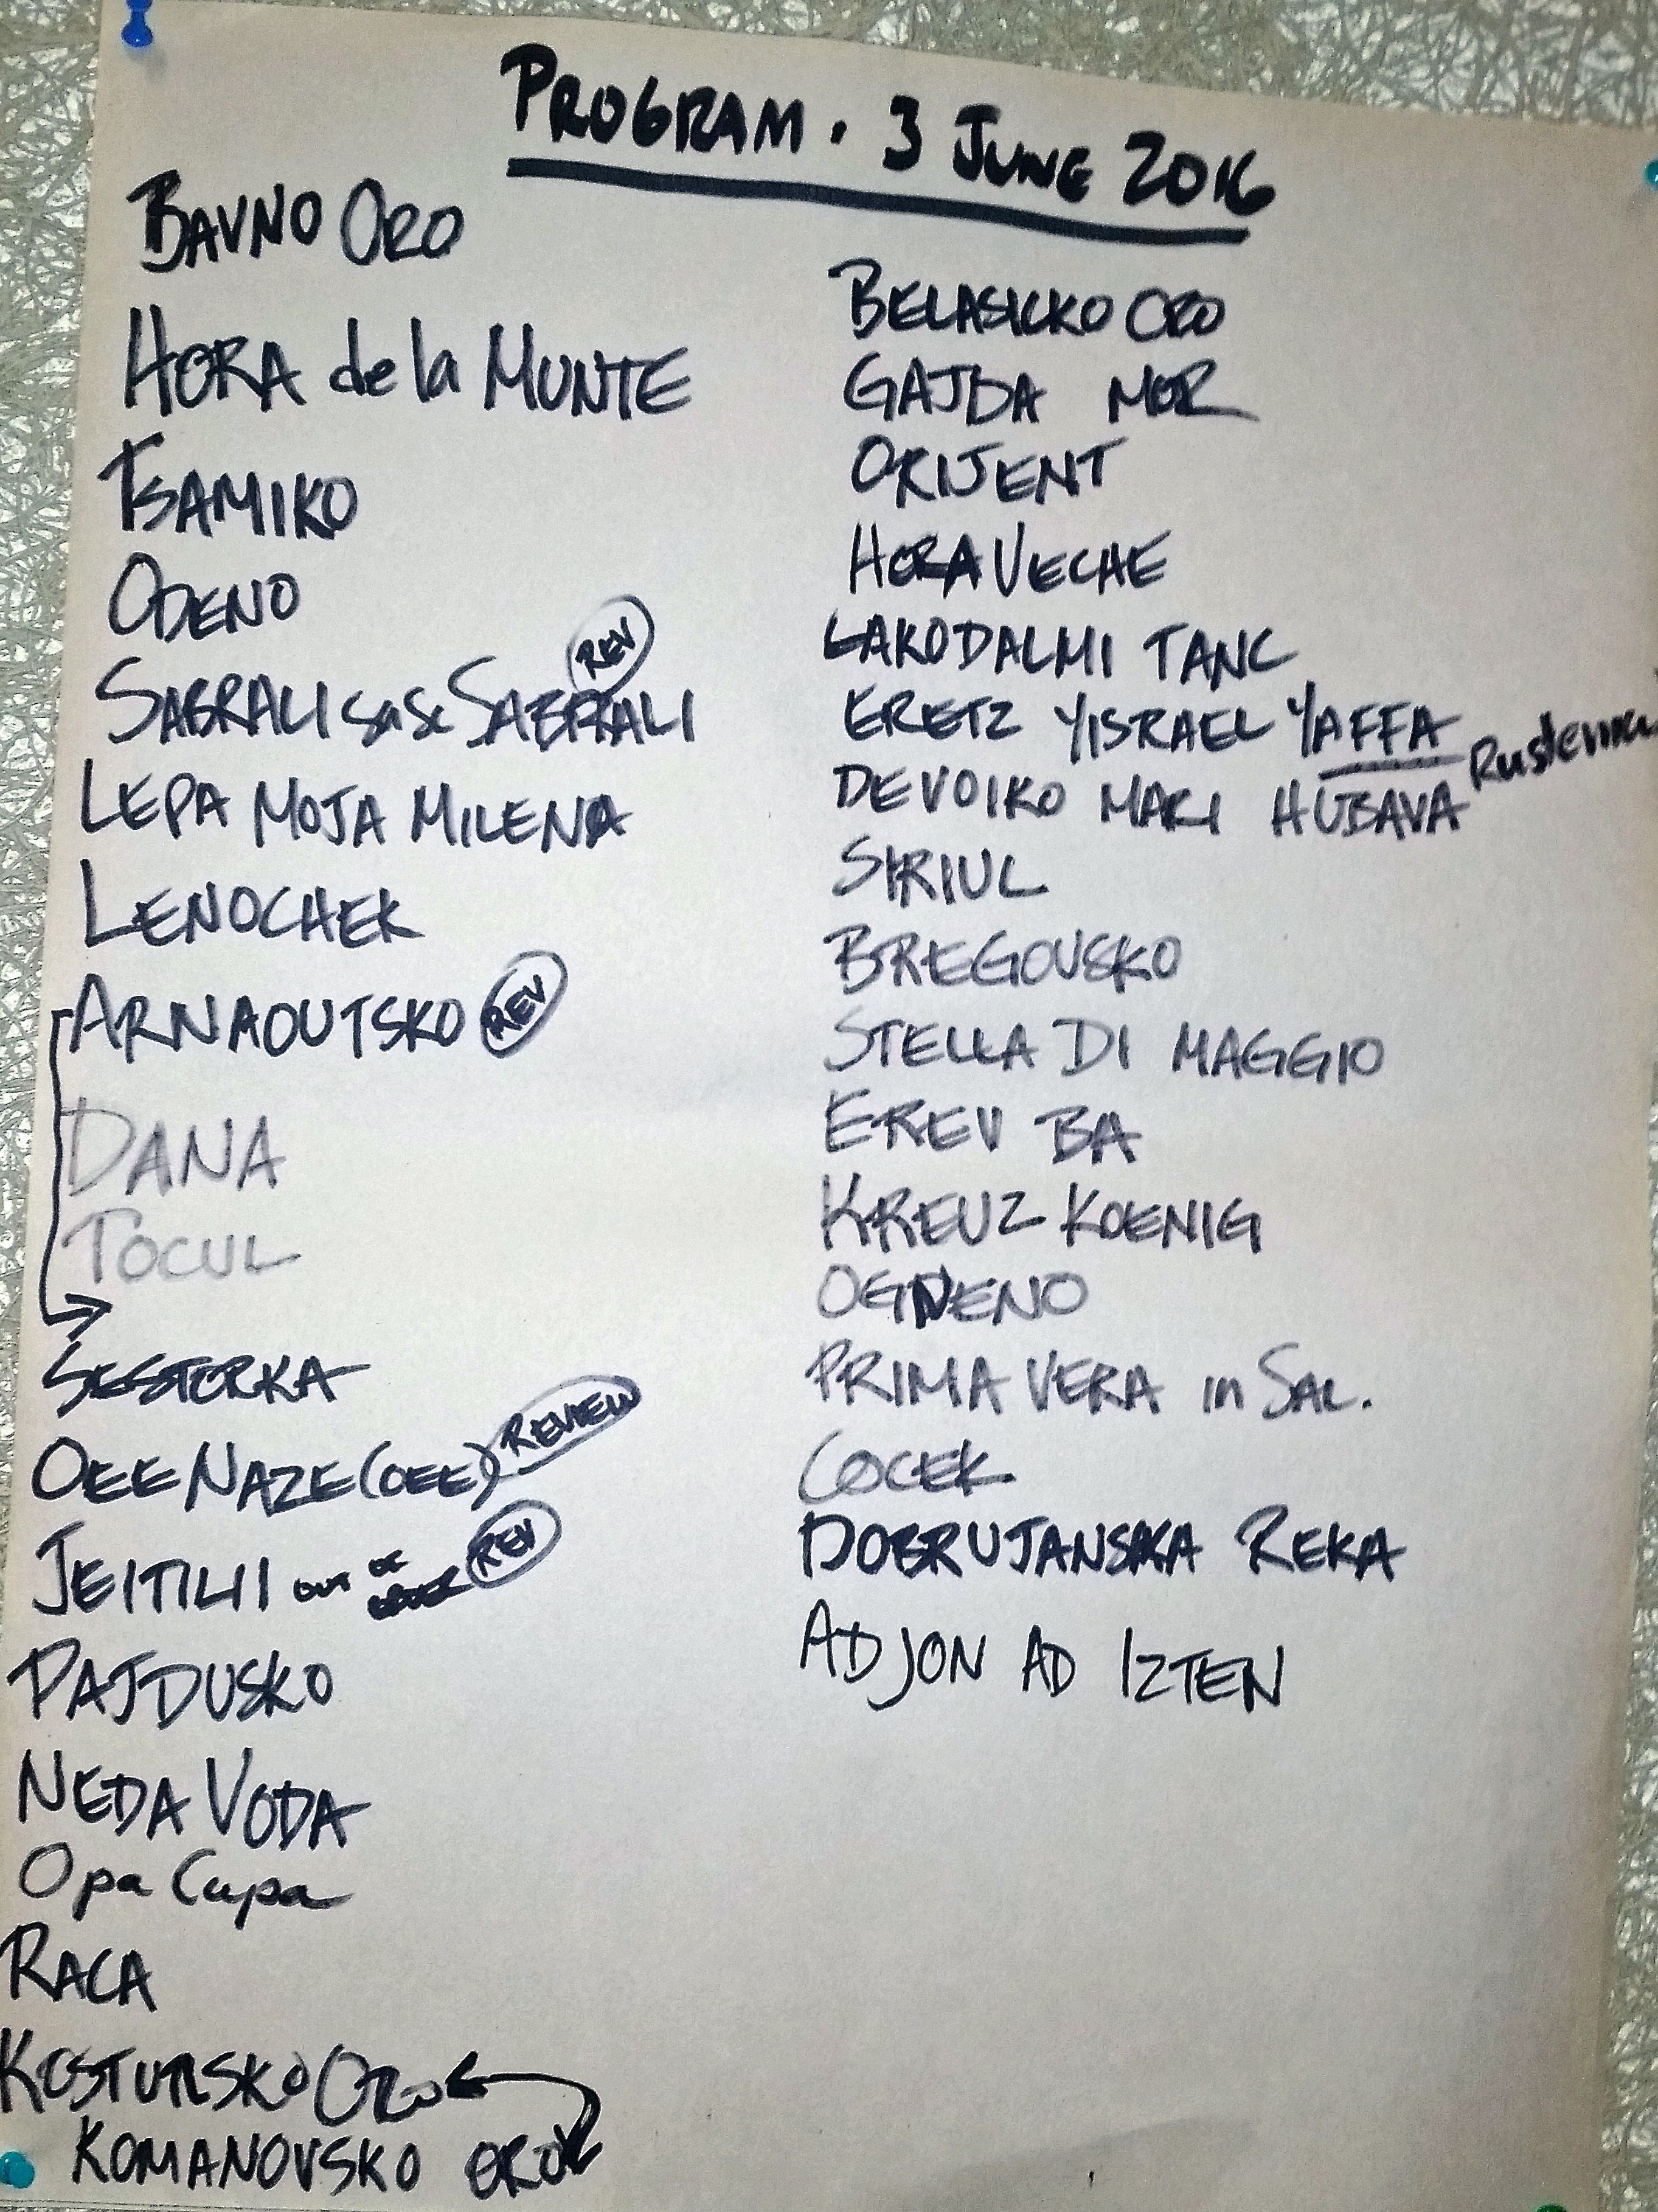 PROGRAM . 3 JUNE 2016
BAVNO ORO
HORA de la MUNTE
TSAMIKO
ODENO
SABRALI sa Se SABRALI REV
LEPA MOJA MILENA
LENOCHEK
ARNAOUTSKO REV
DANA
TOCUL
SESTORKA
OEE NAZE (OEE) REVIEW
JEITILII OUT OF ORDER REV
PAJDUSKO
NEDA VODA
Opa Cupa
RACA
KOSTURSKO ORO
KOMANOVSKO ORO
BELASICKO ORO
GAJDA MOR
ORIJENT
HORA VECHE
LAKODALMI TANC
ERETZ YISRAEL YAFFA
DEVOIKO MARI HUBAVA
SIRIUL
BREGOVSKO
STELLA DI MAGGIO
EREV BA
KREUZ KOENIG
OGNENO
PRIMA VERA in SAL.
COCEK
DOBRUJANSKA REKA
AD JON AD IZTEN